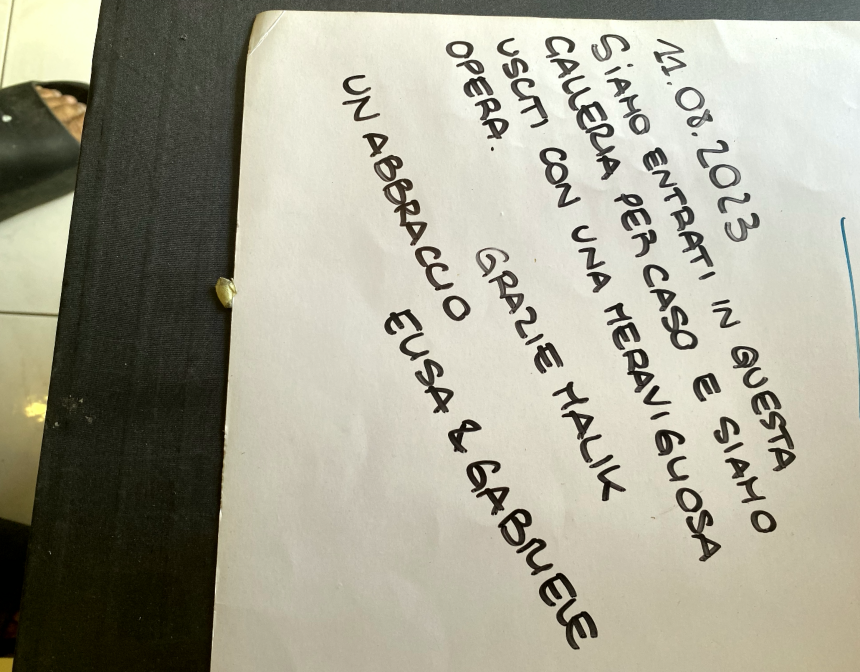 11.08.2023
SiAMO ENTRATI IN QUESTA
GALLERIA PER CASO E SIAMO
USCITI CON UNA MERAVIGLIOSA
OPERA.
GRAZIE MALIK
UN ABBRACCIO
ELISA & GABRIELE